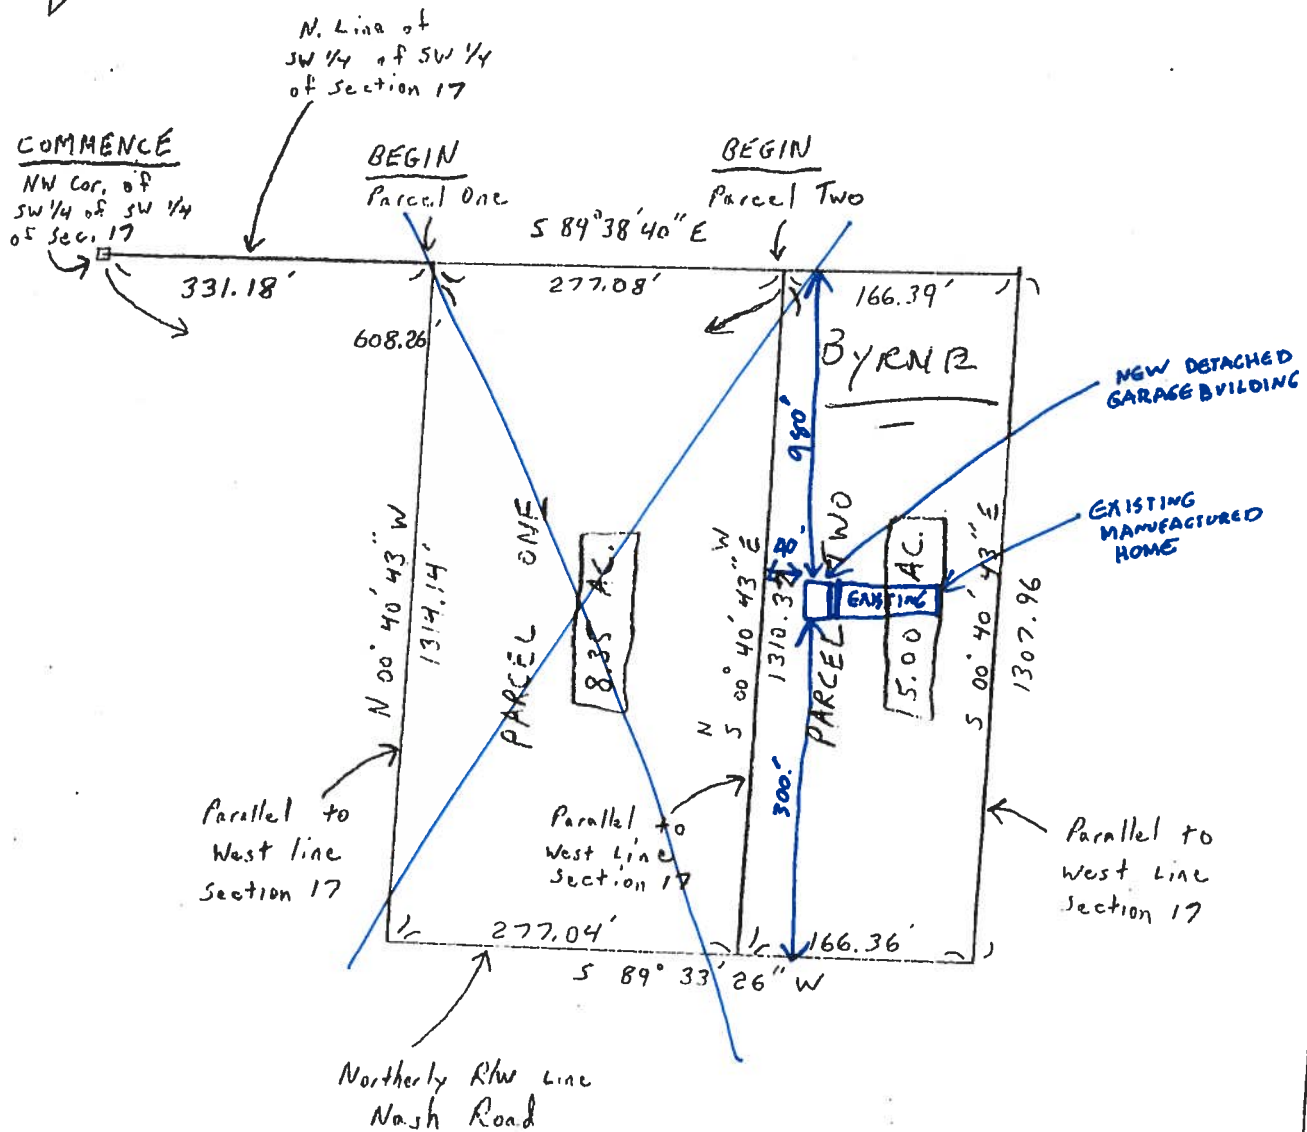 N. Line of
SW 1/4 of SW 1/4
of Section 17
COMMENCE
NW Cor. of
SW 1/4 of SW 1/4
of Sec. 17
BEGIN
Parcel One
BEGIN
Parcel Two
S 89° 38' 40" E
331.18'
277.08'
166.39'
608.26'
BYRNE
NEW DETACHED
GARAGE BUILDING
980'
EXISTING
MANUFACTURED
HOME
40'
EXISTING
PARCEL ONE
8.35 AC.
PARCEL TWO
5.00 AC.
N 00° 40' 43" W
1314.14'
N W
S 00° 40' 43" E
S 00° 40' 43" E
1307.96
300'
Parallel to
West line
Section 17
Parallel to
West Line
Section 17
Parallel to
West Line
Section 17
277.04'
166.36'
S 89° 33' 26" W
Northerly R/W Line
Nash Road